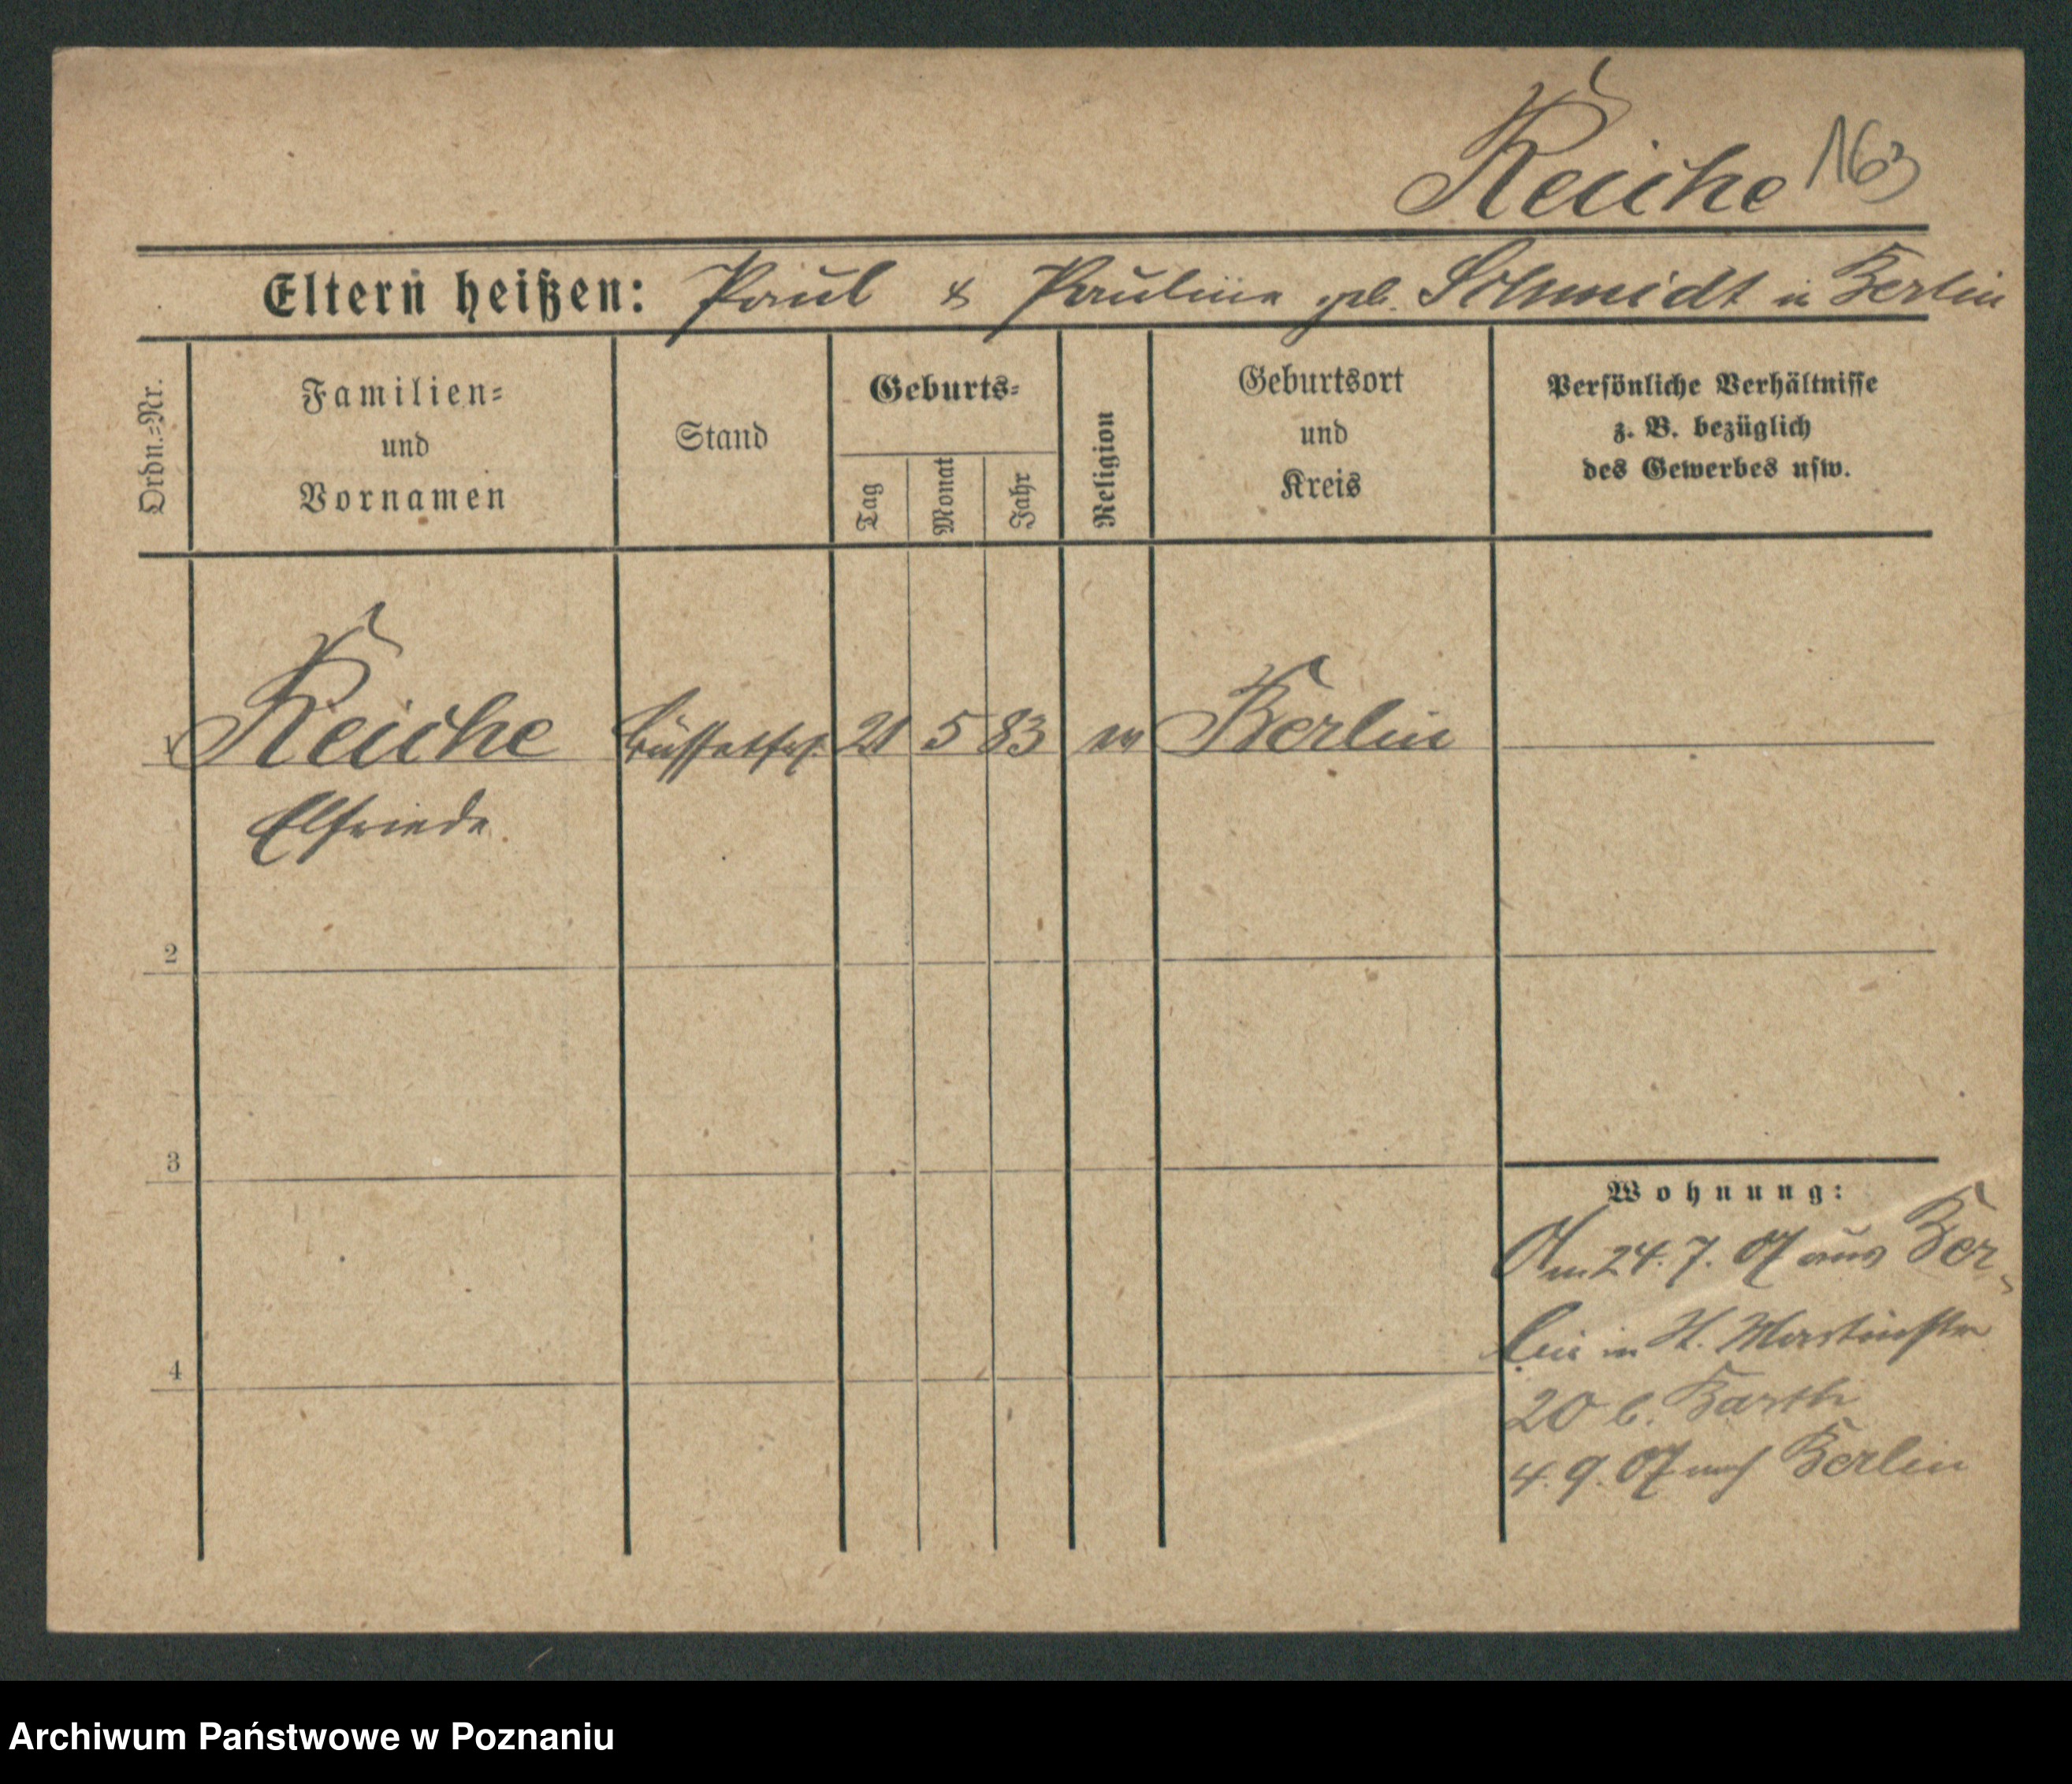 Reiche 163
Eltern heißen: Paul & Pauline geb. Schmidt in Berlin
Ordn.=Nr.
Familien=
und
Vornamen
Stand
Geburts=
Tag
Monat
Jahr
Religion
Geburtsort
und
Kreis
Persönliche Verhältnisse
z. B. bezüglich
des Gewerbes usw.
1 Reiche 21 5 83 ev Berlin
Elfriede
2
3
4
Wohnung:
Am 24. 7. 07 aus Ber-
lin in St. Martinstr
20 b. Barth
4. 9. 07 nach Berlin
Archiwum Państwowe w Poznaniu